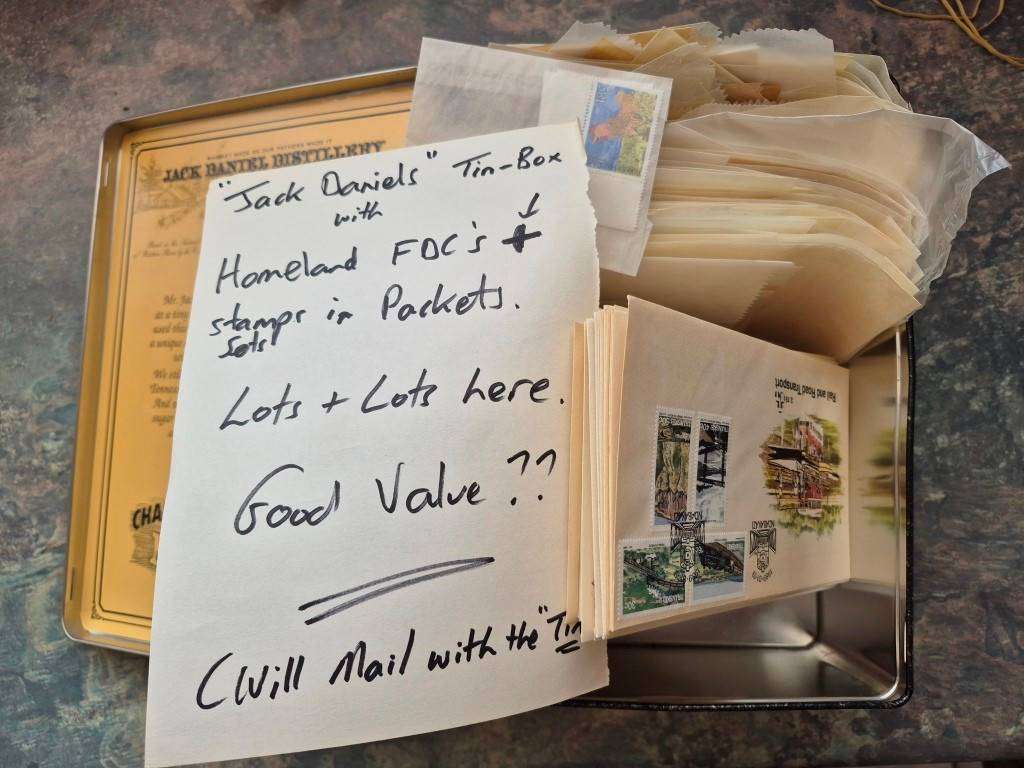 JACK DANIEL DISTILLERY
"Jack Daniels" Tin-Box
with
Homeland FDC's +
stamps in Packets.
sets
Lots + Lots here.
Good Value ??
(Will Mail with the "Tin
Mr. Ja
as a
We
And
CHA
Rail and Road Transport